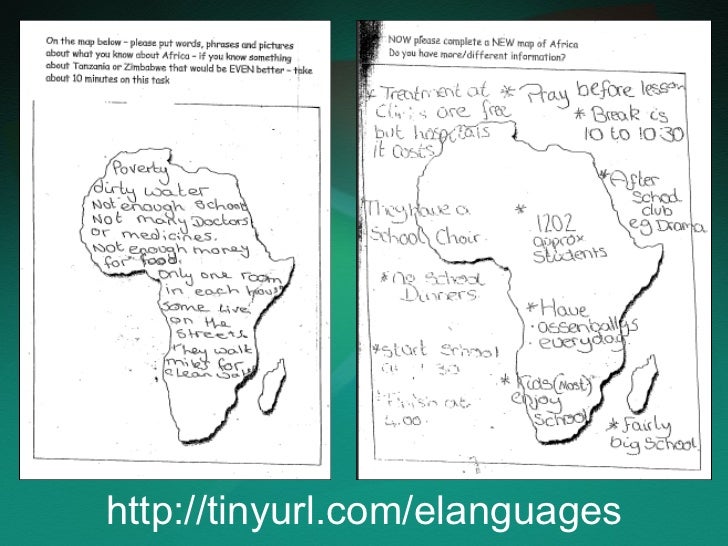 On the map below – please put words, phrases and pictures
about what you know about Africa – if you know something
about Tanzania or Zimbabwe that would be EVEN better – take
about 10 minutes on this task
Poverty
dirty water
Not enough School
Not many Doctors
or medicines.
Not enough money
for food.
only one room
in each house
some live
on the
streets
they walk
miles for
clean
NOW please complete a NEW map of Africa
Do you have more/different information?
* Treatment at
are free
but hospitals
it costs
* Pray before lesson
* Break is
10 to 10 30
* After
School
club
eg Drama
They have a
School Choir
* 1202
approx
students
* No School
Dinners
* Have
assemballys
everyday
* Start School
* Kids (Most)
enjoy
School
at
4.00
* Fairly
big School.
http://tinyurl.com/elanguages